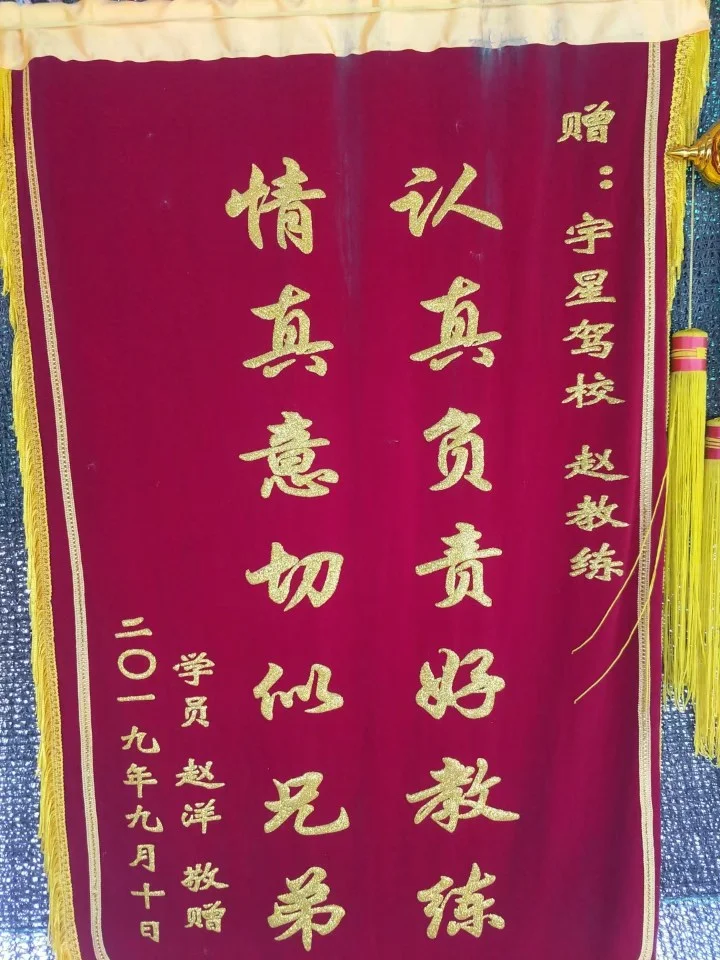 赠：宇星驾校 赵教练
认真负责好教练
情真意切似兄弟
学员 赵洋 敬赠
二〇一九年九月十日